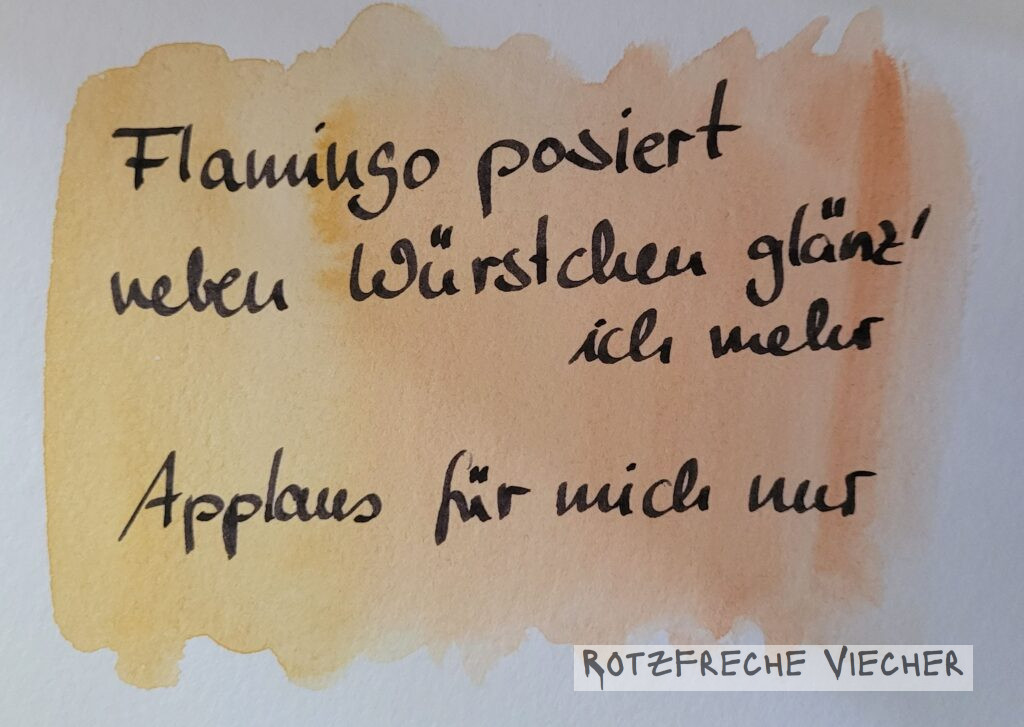 Flamingo posiert
neben Würstchen glänz'
ich mehr
Applaus für mich nur
ROTZFRECHE VIECHER